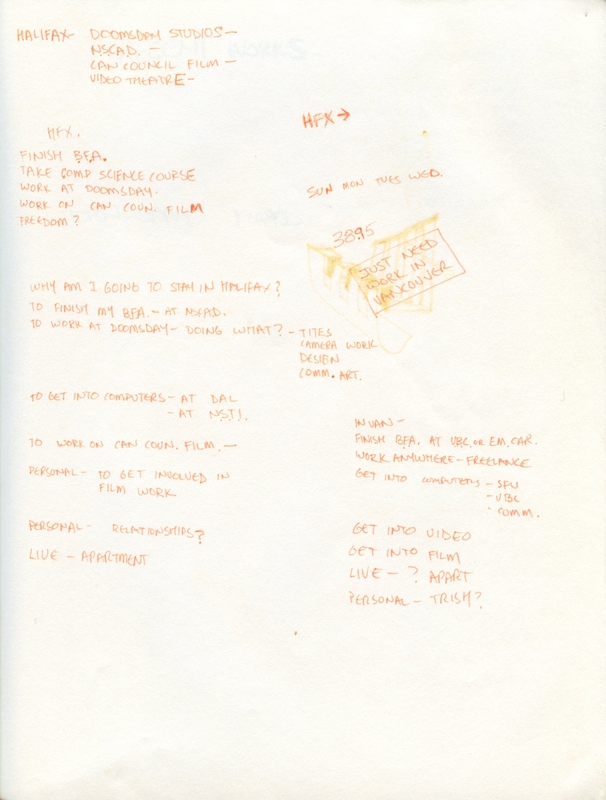 HALIFAX- DOOMSDAY STUDIOS-
N.S.C.A.D. -
CAN COUNCIL FILM -
VIDEO THEATRE-
HFX →
HFX.
FINISH B.F.A.
TAKE COMP SCIENCE COURSE
WORK AT DOOMSDAY.
WORK ON CAN COUN. FILM
FREEDOM?
SUN MON TUES WED.
38.95
JUST NEED
WORK IN
VANCOUVER
WHY AM I GOING TO STAY IN HALIFAX?
TO FINISH MY B.F.A. - AT NSCAD.
TO WORK AT DOOMSDAY - DOING WHAT? - TITES
CAMERA WORK
DESIGN
COMM. ART.
TO GET INTO COMPUTERS - AT DAL
- AT N.S.T.I.
TO WORK ON CAN COUN. FILM. -
PERSONAL - TO GET INVOLVED IN
FILM WORK
PERSONAL - RELATIONSHIPS?
LIVE - APARTMENT
IN VAN -
FINISH B.F.A. AT UBC. OR EM. CAR.
WORK ANYWHERE - FREELANCE
GET INTO COMPUTERS - SFU
- UBC
- COMM.
GET INTO VIDEO
GET INTO FILM
LIVE - ? APART
PERSONAL - TRISH?